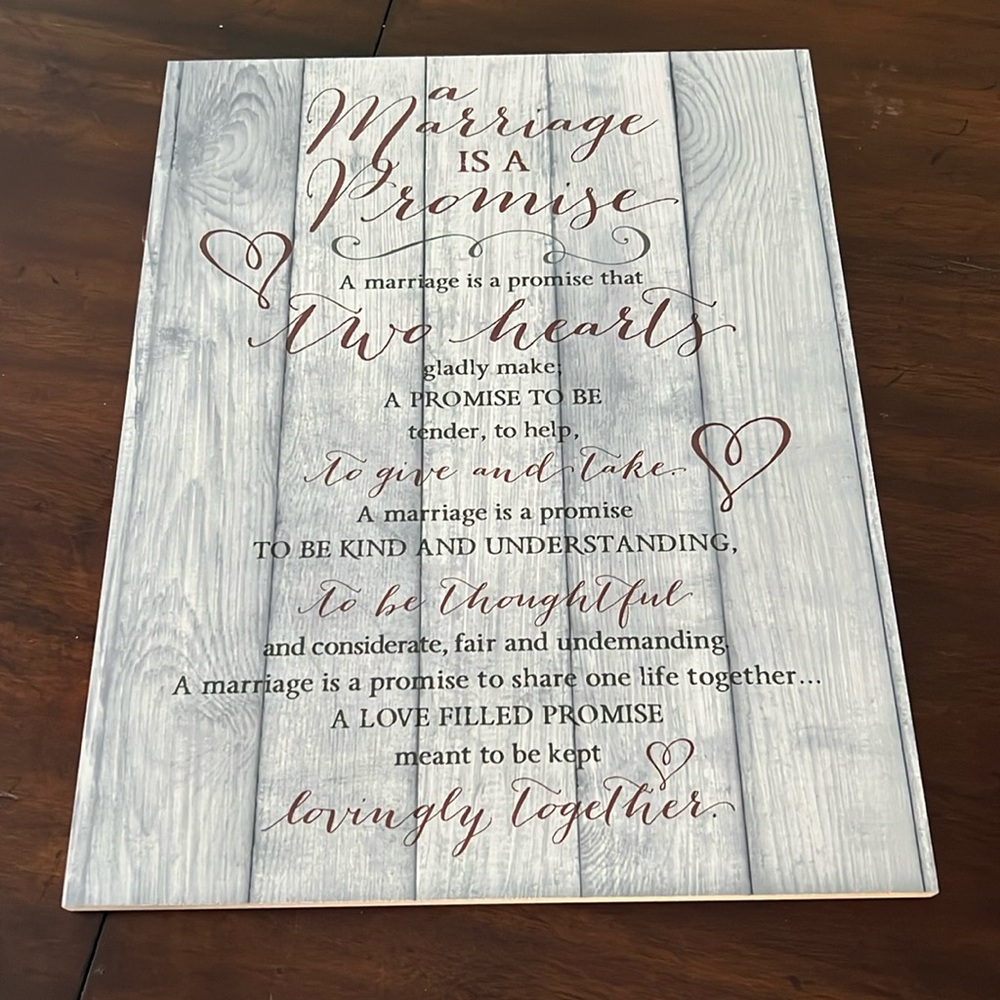 a
Marriage
IS A
Promise
A marriage is a promise that
two hearts
gladly make;
A PROMISE TO BE
tender, to help,
to give and take.
A marriage is a promise
TO BE KIND AND UNDERSTANDING,
to be thoughtful
and considerate, fair and undemanding.
A marriage is a promise to share one life together...
A LOVE FILLED PROMISE
meant to be kept
lovingly together.